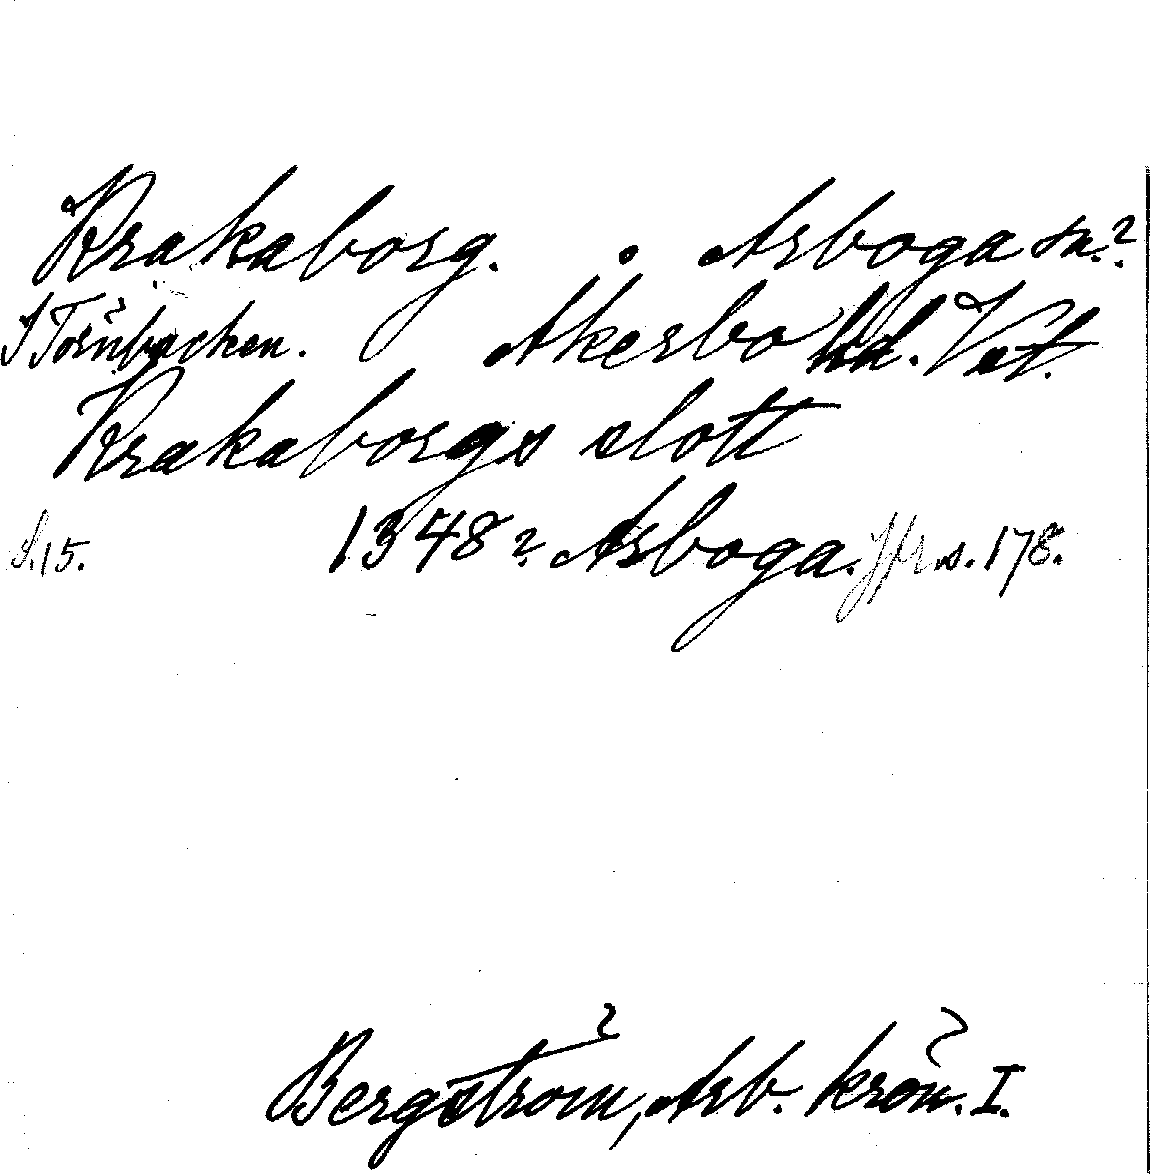 Krakaborg. Arboga sn.?
I Törnbacken. Åkerbo hd. Vst.
Krakaborgs slott
s. 15. 1348? Arboga. Jfr s. 178.
Bergström, Arb. krön. I.